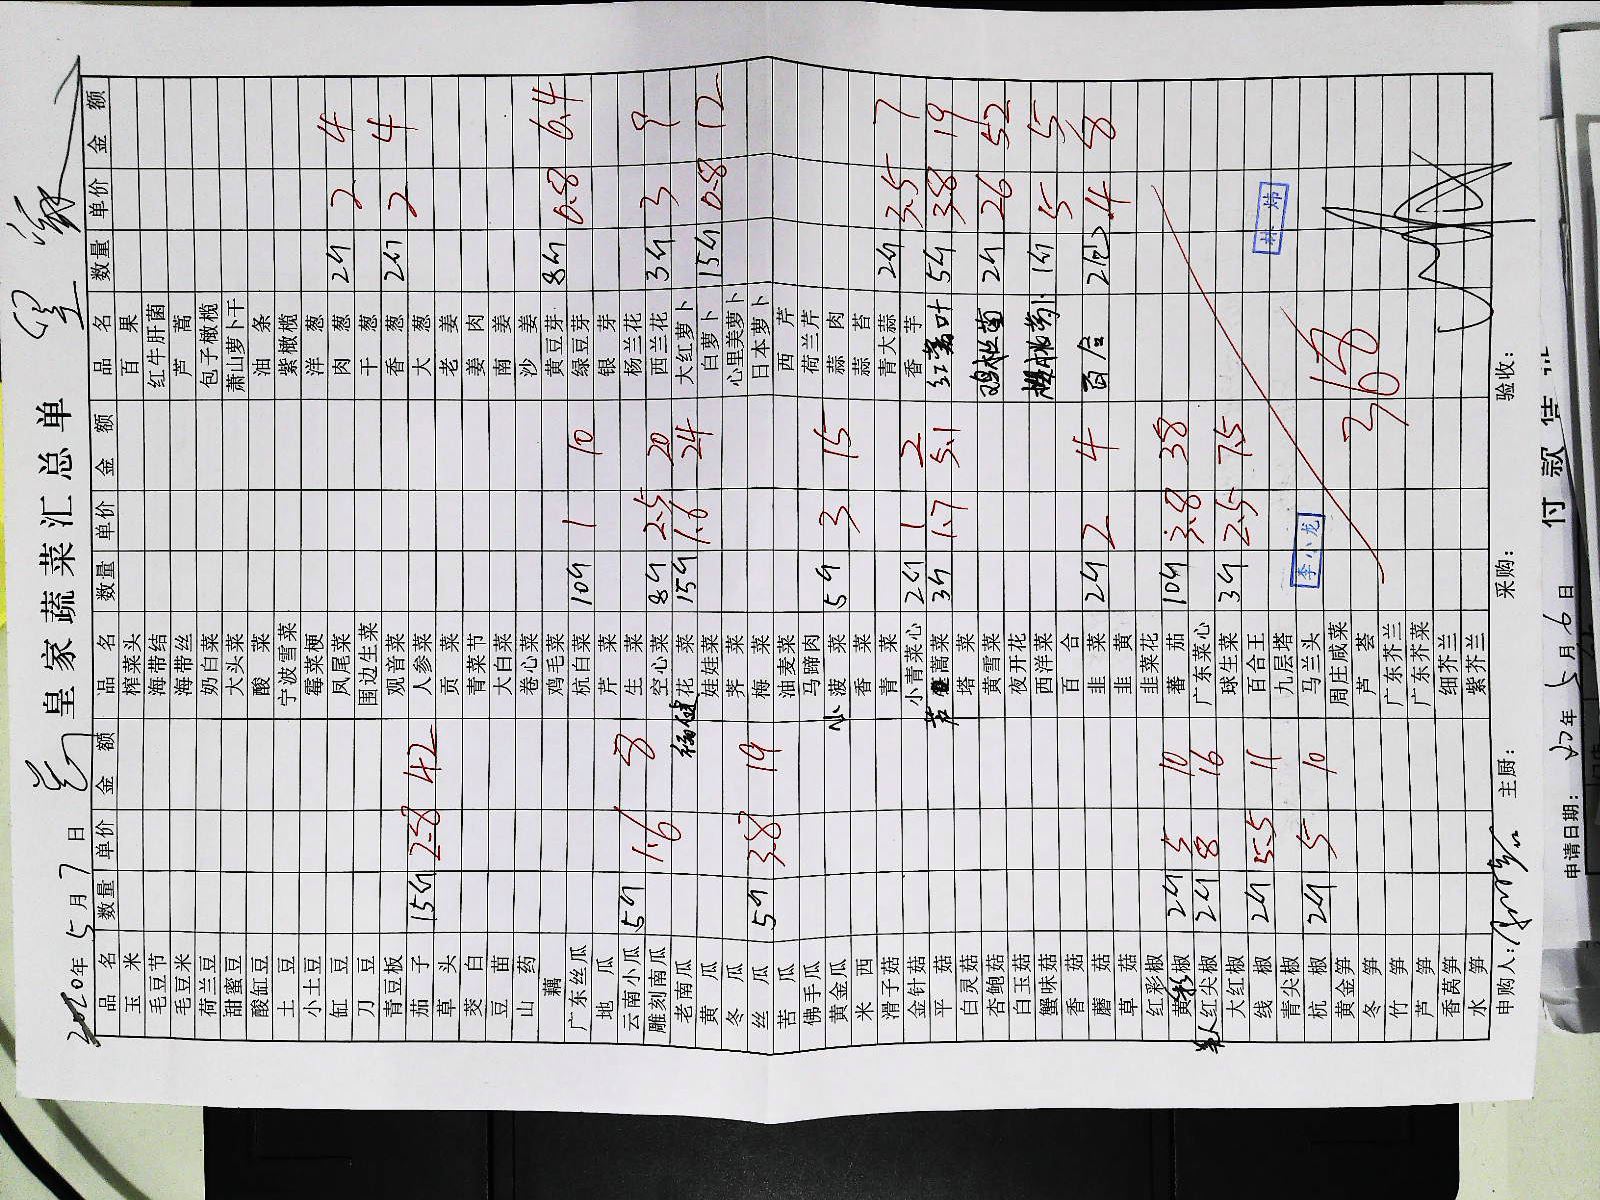 皇家蔬菜汇总单
2020年5月7日
品名 数量 单价 金额 品名 数量 单价 金额 品名 数量 单价 金额
玉米 榨菜头 百果
毛豆节 海带结 红牛肝菌
毛豆米 海带丝 芦蒿
荷兰豆 奶白菜 包子橄榄
甜蜜豆 大头菜 萧山萝卜干
酸缸豆 酸菜 油条
土豆 宁波雪菜 紫橄榄
小土豆 霉菜梗 洋葱
缸豆 凤尾菜 肉葱 2斤 2 4
刀豆 围边生菜 干葱
青豆板 观音菜 香葱 2斤 2 4
茄子 15斤 2.8 42 人参菜 大葱
草头 贡菜 老姜
茭白 青菜节 姜肉
豆苗 大白菜 南姜
山药 卷心菜 沙姜
藕 鸡毛菜 黄豆芽 8斤 0.8 6.4
广东丝瓜 杭白菜 10斤 1 10 绿豆芽
地瓜 芹菜 银芽
云南小瓜 5斤 1.6 8 生菜 杨兰花
雕刻南瓜 空心菜 8斤 2.5 20 西兰花 3斤 3 9
老南瓜 花菜 15斤 1.6 24 大红萝卜
黄瓜 娃娃菜 白萝卜 15斤 0.8 12
冬瓜 荠菜 心里美萝卜
丝瓜 5斤 3.8 19 梅菜 日本萝卜
苦瓜 油麦菜 西芹
佛手瓜 马蹄肉 荷兰芹
黄金瓜 小菠菜 5斤 3 15 蒜肉
米西 香菜 蒜苔
滑子菇 青菜 青大蒜 2斤 3.5 7
金针菇 小青菜心 2斤 1 2 香芋
平菇 蒿菜 3斤 1.7 5.1 红薯叶 5斤 3.8 19
白灵菇 塔菜
杏鲍菇 黄雪菜 鸡枞菌 2斤 26 52
白玉菇 夜开花
蟹味菇 西洋菜 1斤 5 5
香菇 百合
蘑菇 韭菜 2斤 2 4 百合 2包 4 8
草菇 韭黄
红彩椒 韭菜花
黄彩椒 2斤 5 10 蕃茄 10斤 3.8 38
美人红尖椒 2斤 8 16 广东菜心
大红椒 球生菜 3斤 2.5 7.5
线椒 2斤 5.5 11 百合王
青尖椒 九层塔
杭椒 2斤 5 10 马兰头
黄金笋 周庄咸菜
冬笋 芦荟
竹笋 广东芥兰
芦笋 广东芥菜
香莴笋 细芥兰
水笋 紫芥兰
李小龙
368
申购人: 主厨: 采购: 验收:
付款
申请日期: 年5月6日